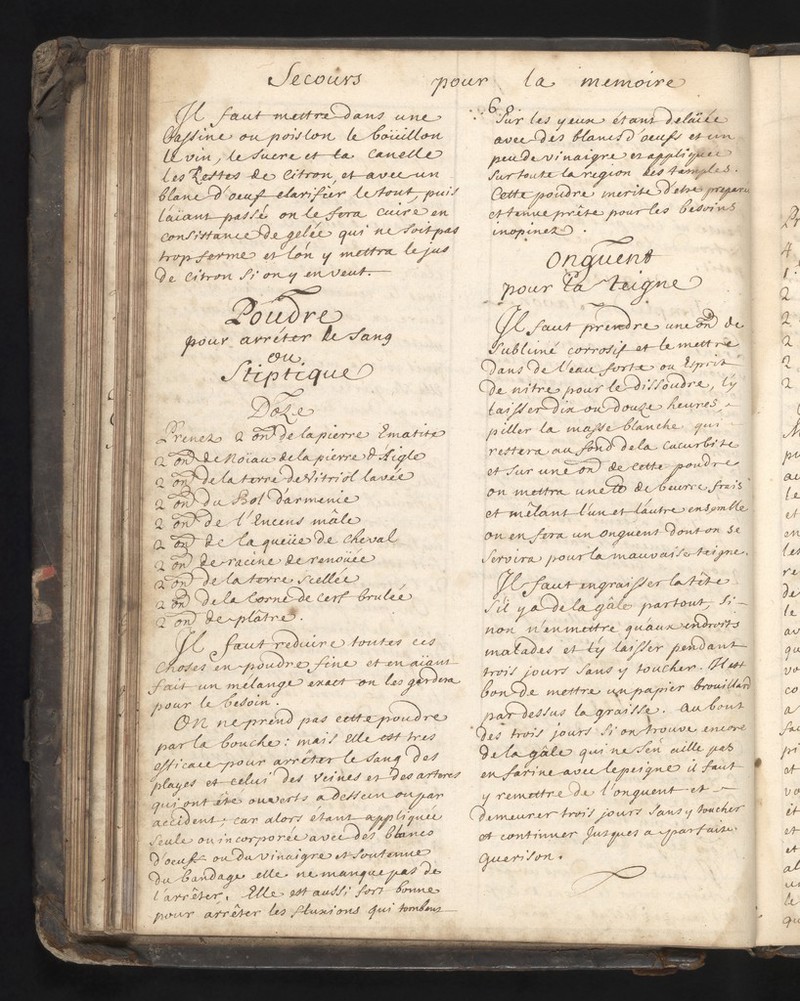 Secours pour la memoire
Il faut mettre dans une
Bassine ou poislon le boüillon
le vin, le sucre et la canelle
les Zestes de Citron, et avec un
blanc d'oeuf clarifier le tout, puis
l'aïant passé on le fera cuire en
consistance de gelée qui ne soit pas
trop ferme et l'on y mettra le jus
de citron si on y en veut.
Poudre
pour arréter le sang
ou
Stiptique
Doze
Prenez 2 on de la pierre Ematite
2 on de Noïau de la pierre d'Aigle
2 on de la terre de Vitriol lavée
2 on du Bol d'armenie
2 on de l'Encens mâle
2 on de la queüe de cheval
2 on de racine de renoüée
2 on de la terre scellée
2 on de la Corne de Cerf brulée
2 on de plâtre.
Il faut reduire toutes ces
choses en poudre fine et en aïant
fait un mélange exact on les gardera
pour le besoin.
On ne prend pas cette poudre
par la bouche: mais elle est tres
efficace pour arréter le sang des
playes et celui des veines et des arteres
qui ont été ouverts a dessein ou par
accident; car alors étant appliquée
seule ou incorporée avec des blancs
d'oeufs ou du vinaigre et soutenue
du bandage elle ne manque pas de
l'arrêter. Elle est aussi fort bonne
pour arrêter les fluxions qui tombent
68
sur les yeux étant delaïée
avec des blancs d'oeufs et un
peu de vinaigre et appliquée
sur toute la region des temples.
Cette poudre merite d'etre preparée
et tenue prête pour les besoins
inopinez.
Onguent
pour la teigne
Il faut prendre une on de
sublimé corrosif et le mettre
dans de l'eau forte ou Esprit
de nitre pour le dissoudre, l'y
laisser dix ou douze heures,
piller la masse blanche qui
restera au fond de la cucurbite
et sur une on de cette poudre
on mettra une de beurre frais
et mêlant l'un et l'autre ensemble
on en fera un onguent dont on se
servira pour la mauvaise teigne.
Il faut engraisser la tête
s'il y a de la gâle partout, si-
non n'en mettre qu'aux endroits
malades et l'y laisser pendant
trois jours sans y toucher. Il est
bon de mettre un papier brouillard
par dessus la graisse. au bout
des trois jours si on trouve encore
de la gale qui ne s'en aille pas
en farine avec le peigne il faut
y remettre de l'onguent et
demeurer trois jours sans y toucher
et continuer jusques a parfaite
guerison.